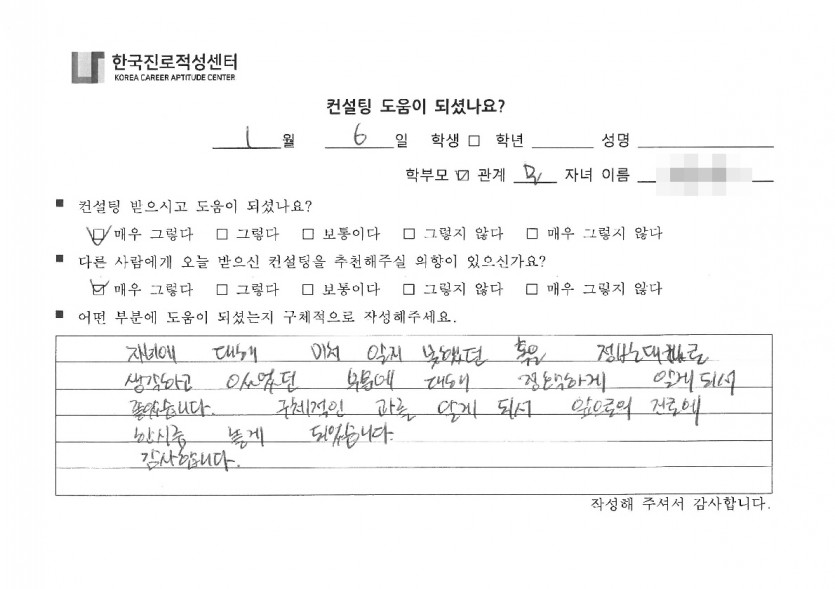 한국진로적성센터
KOREA CAREER APTITUDE CENTER
컨설팅 도움이 되셨나요?
1 월 6 일 학생 □ 학년 성명
학부모 ☑ 관계 모 자녀 이름
■ 컨설팅 받으시고 도움이 되셨나요?
☑ 매우 그렇다 □ 그렇다 □ 보통이다 □ 그렇지 않다 □ 매우 그렇지 않다
■ 다른 사람에게 오늘 받으신 컨설팅을 추천해주실 의향이 있으신가요?
☑ 매우 그렇다 □ 그렇다 □ 보통이다 □ 그렇지 않다 □ 매우 그렇지 않다
■ 어떤 부분에 도움이 되셨는지 구체적으로 작성해주세요.
자녀에 대해 미처 알지 못했던 혹은
생각하고 있었던 부분에 대해 알게되서
좋았습니다. 구체적인 과를 알게 되서 앞으로의 진로에
한시름 놓게 되었습니다.
감사합니다.
작성해 주셔서 감사합니다.